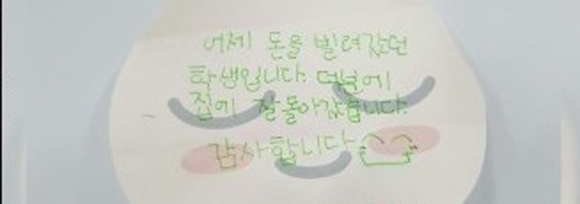 어제 돈을 빌려갔던
학생입니다. 덕분에
집에 잘 돌아갔습니다.
감사합니다